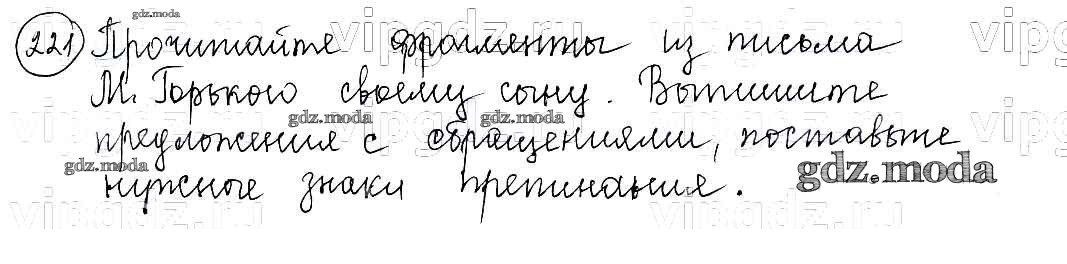 gdz.moda
221 Прочитайте фрагменты из письма
М. Горького своему сыну. Выпишите
gdz.moda gdz.moda
предложения с обращениями, поставьте
gdz.moda gdz.moda
нужные знаки препинания.
vipgdz.ru vipgdz.ru